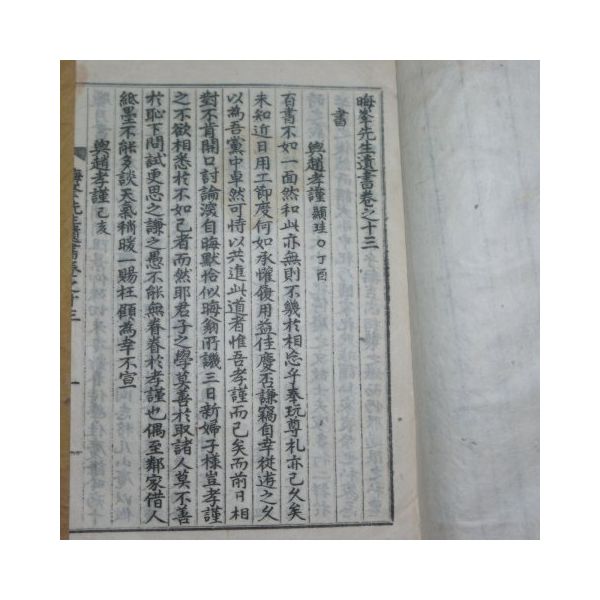 晦峯先生遺書卷之十三
書
與趙孝謹 顯珪○丁酉
百書不如一面然和此亦無則不幾於相忘乎奉玩尊札亦已久矣
未知近日用工節度何如承懽復用益佳慶否謙竊自幸從遊之久
以為吾黨中卓然可恃以共進此道者惟吾孝謹而已矣而前日相
對不肯開口討論濱自晦默恰似晦翁所譏三日新婦子樣豈孝謹
之不欲相悉於不如己者而然耶君子之學莫善於取諸人莫不善
於恥下問試更思之謙之愚不能無眷眷於孝謹也偶至鄰家借人
紙墨不能多談天氣稍暖一賜枉顧為幸不宣
與趙孝謹 己亥
晦峯先生遺書卷之十三 一